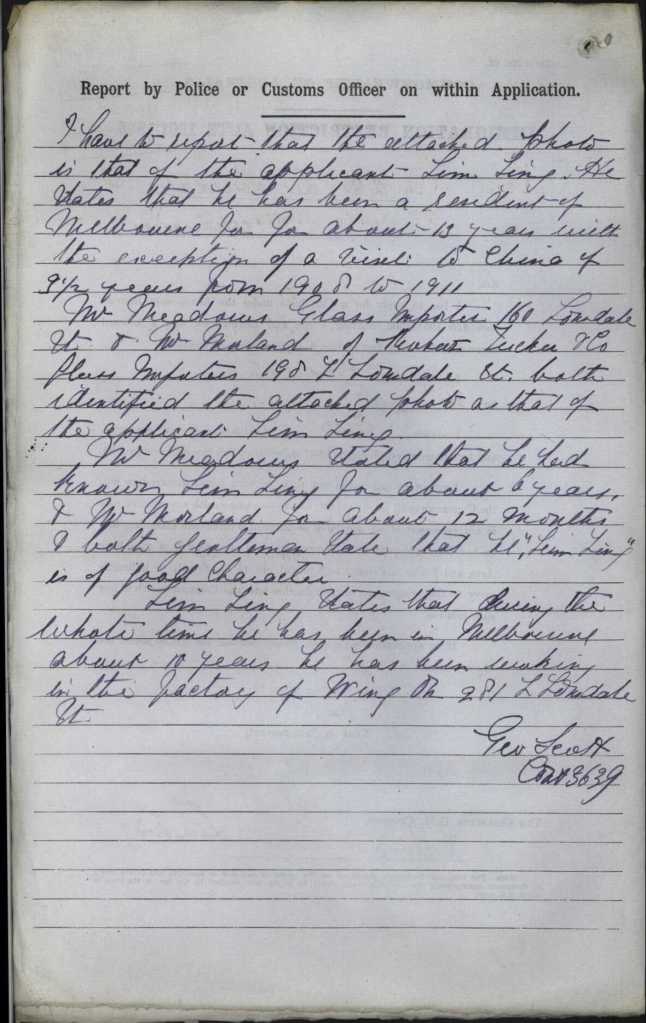 Report by Police or Customs Officer on within Application.
I have to report that the attached photo
is that of the applicant Lim Ling. He
states that he has been a resident of
Melbourne for for about 13 years with
the exception of a visit to China of
years from 1908 to 1911
Mr Meadows Glass Importer 160 Lonsdale
St & Mr Morland of Tucker & Co
Glass Importers 198 L Lonsdale St. both
identified the attached photo as that of
the applicant Lim Ling
Mr Meadows stated that he had
known Lim Ling for about 6 years,
& Mr Morland for about 12 months
& both gentleman state that he, "Lim Ling"
is of good character.
Lim Ling states that during the
whole time he has been in Melbourne
about 10 years he has been working
in the factory of Wing On 281 L Lonsdale
St
Geo Scott
Const 3639